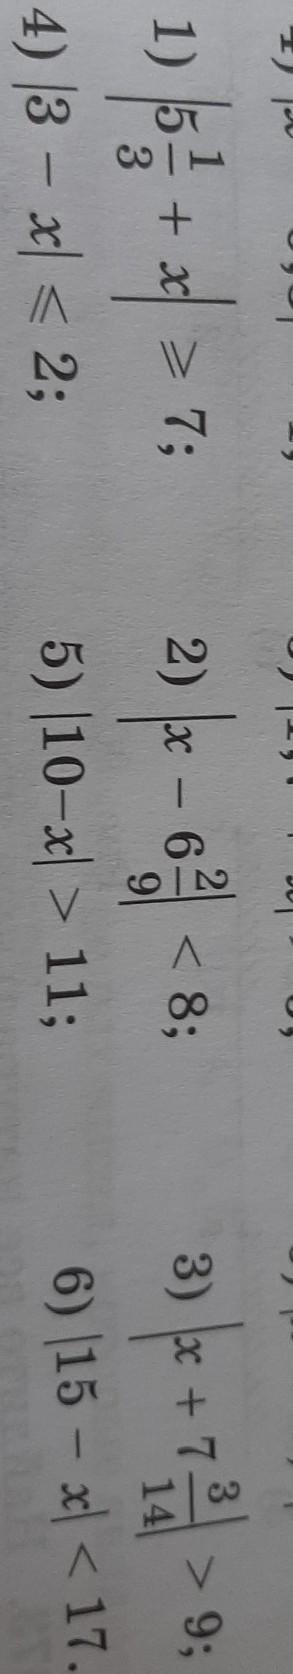 1) |5 1/3 + x| ⩾ 7; 2) |x − 6 2/9| < 8; 3) |x + 7 3/14| > 9;
4) |3 − x| ⩽ 2; 5) |10−x| > 11; 6) |15 − x| < 17.